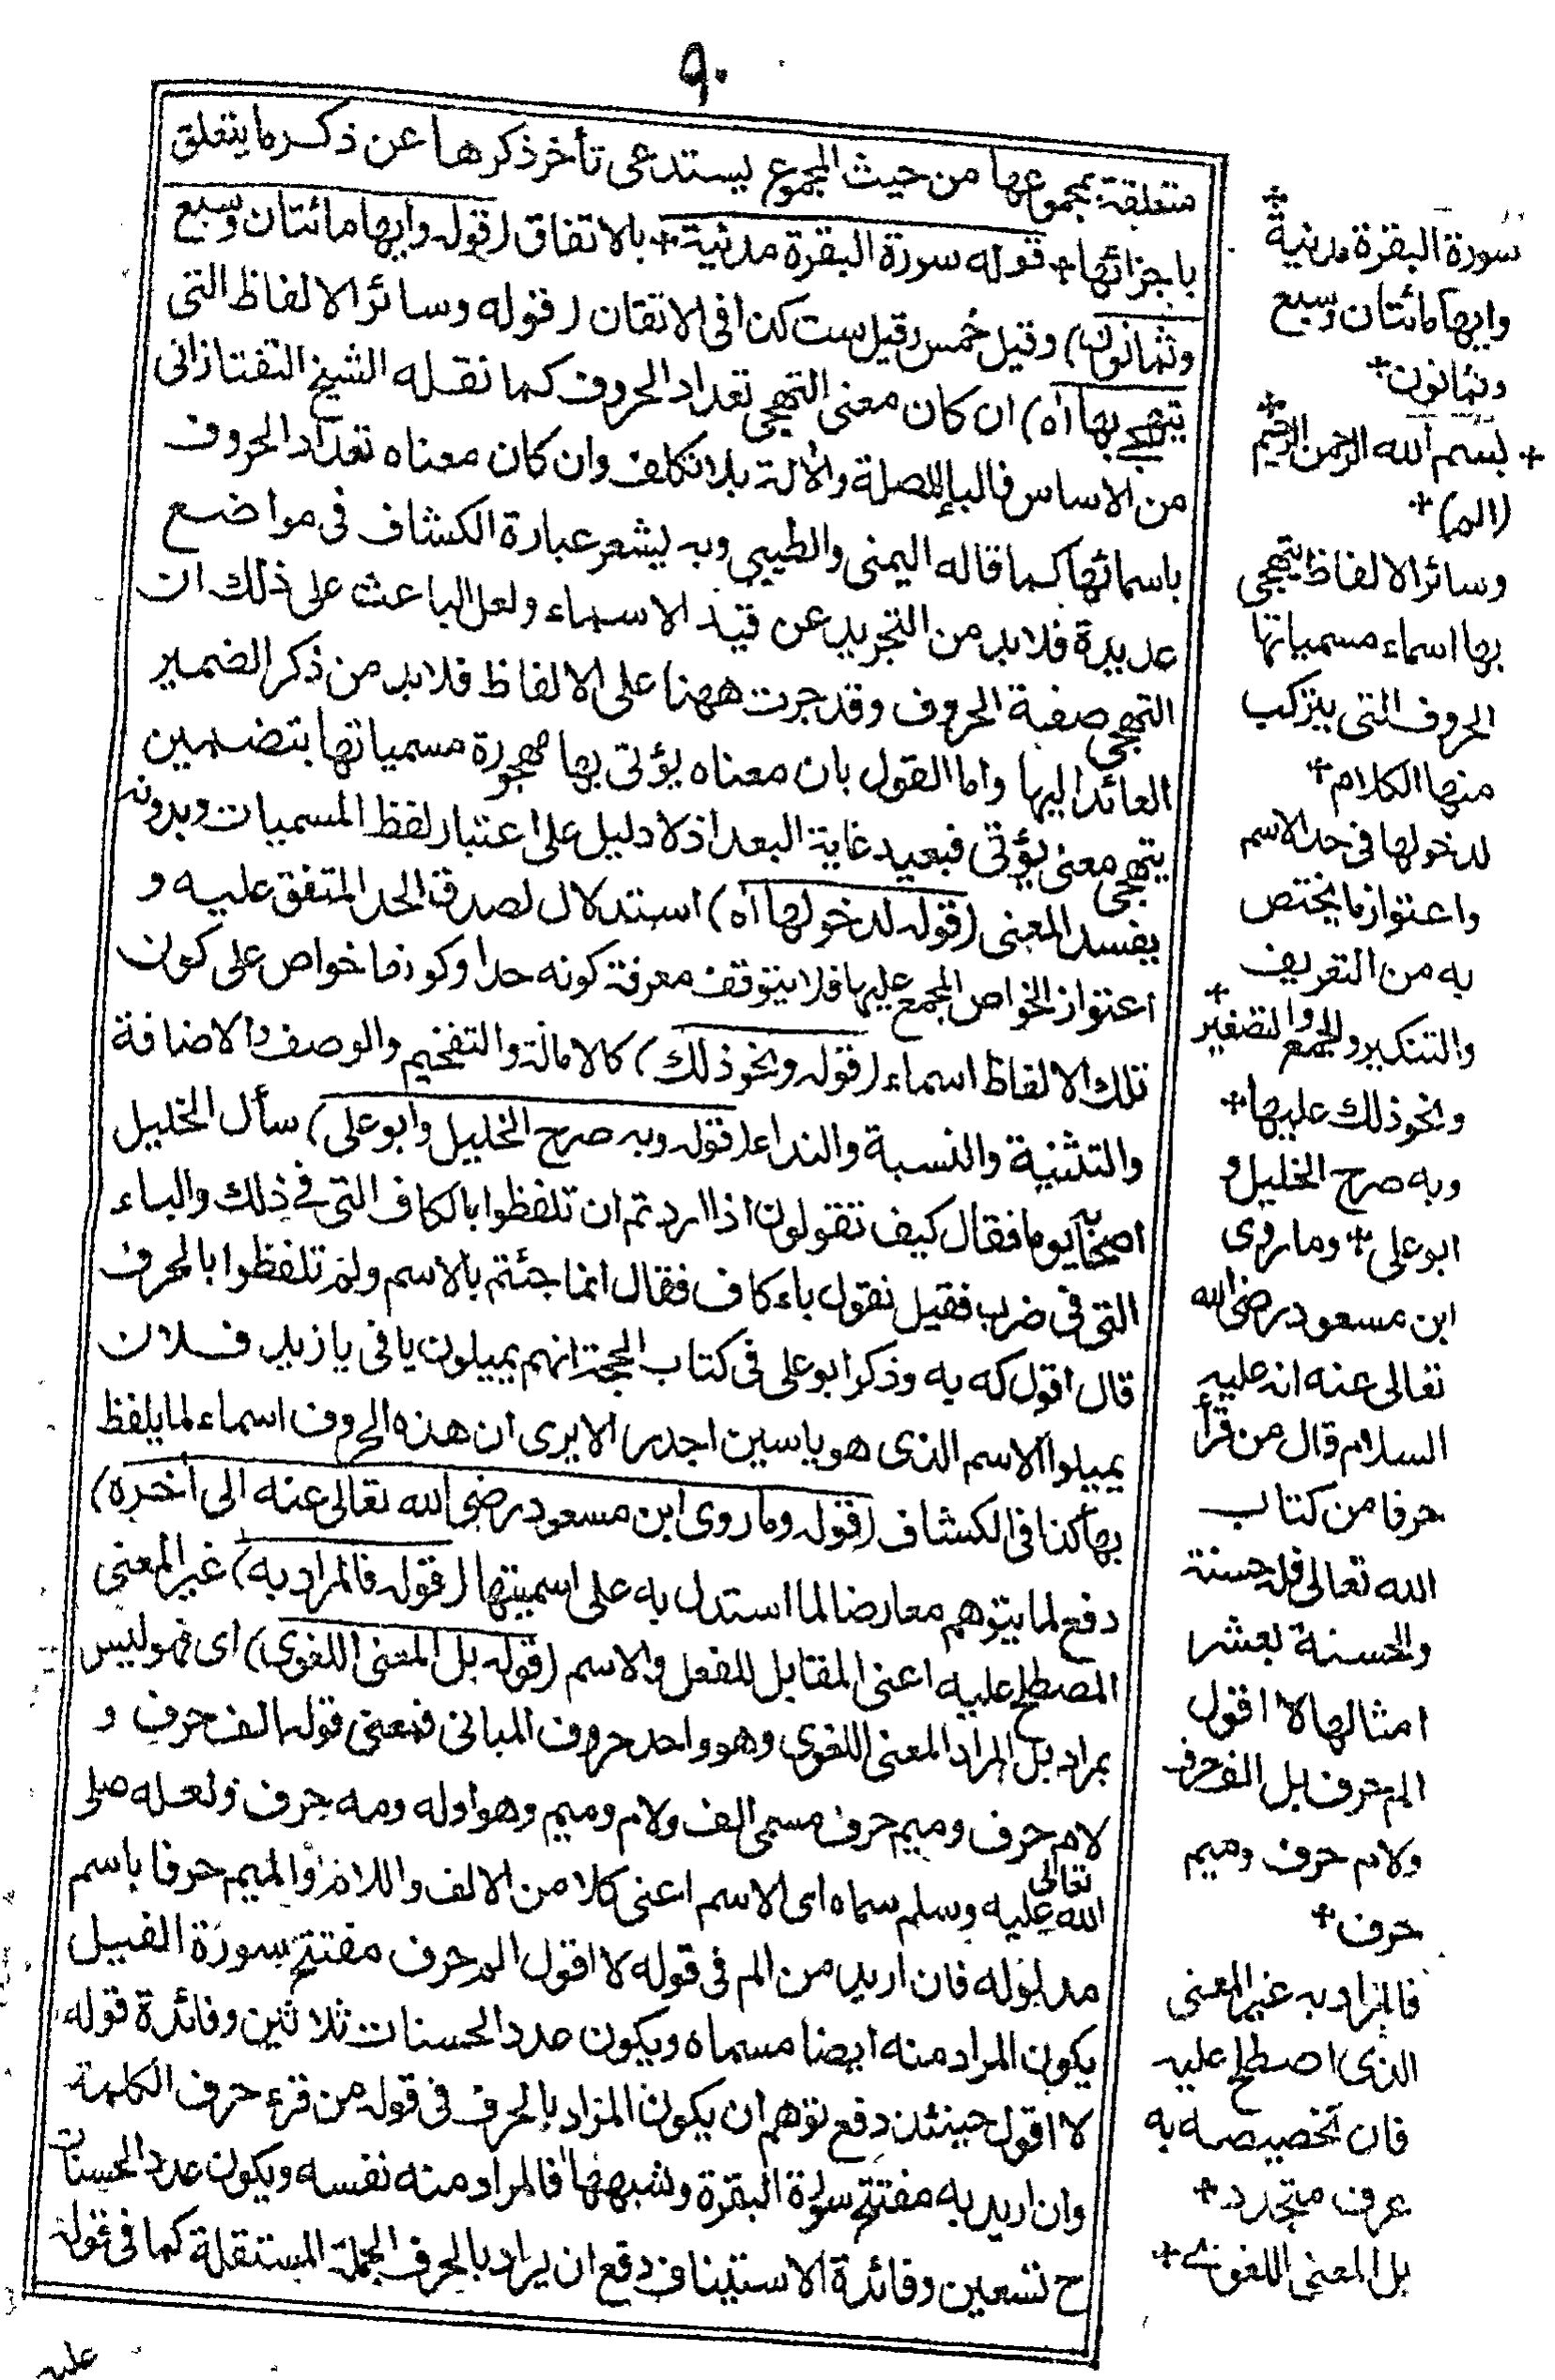 ٩٠
متعلقة بمجموعها من حيث المجموع يستدعى تأخر ذكرها عن ذكر ما يتعلق
باجزائها + قوله سورة البقرة مدنية + بالاتفاق (قوله وايها مائتان وسبع
وثمانون) وقيل خمس وقيل ست كذا فى الاتقان (قوله وسائر الالفاظ التى
يتهجى بها اه) ان كان معنى التهجى تعداد الحروف كما نقله الشيخ التفتازانى
من الاساس فالباء للصلة والالة بلا تكلف وان كان معناه تعداد الحروف
باسمائها كما قاله اليمنى والطيبى وبه يشعر عبارة الكشاف فى مواضع
عديدة فلا بد من التجريد عن قيد الاسماء ولعل الباعث على ذلك ان
التهجى صفة الحروف وقد جرت ههنا على الالفاظ فلا بد من ذكر الضمير
العائد اليها واما القول بان معناه يؤتى بها مهجورة مسمياتها بتضمين
يتهجى معنى يؤتى فبعيد غاية البعد اذ لا دليل على اعتبار لفظ المسميات وبدونه
يفسد المعنى (قوله لدخولها اه) استدلال لصدق الحد المتفق عليه و
اعتوار الخواص المجمع عليها فلا يتوقف معرفة كونه حدا وكونها خواص على كون
تلك الالفاظ اسماء (قوله ونحو ذلك) كالامالة والتفخيم والوصف والاضافة
والتثنية والنسبة والنداء (قوله وبه صرح الخليل وابو على) سأل الخليل
اصحابه يوما فقال كيف تقولون اذا اردتم ان تلفظوا بالكاف التى فى ذلك والباء
التى فى ضرب فقيل نقول باء كاف فقال انما جئتم بالاسم ولم تلفظوا بالحرف
قال اقول كه به وذكر ابو على فى كتاب الحجة انهم يميلون يا فى يا زيد فلان
يميلوا الاسم الذى هو ياسين اجدر الا يرى ان هذه الحروف اسماء لما يلفظ
بها كذا فى الكشاف (قوله وما روى ابن مسعود رضى الله تعالى عنه الى أخره)
دفع لما يتوهم معارضا لما استدل به على اسميتها (قوله فالمراد به) غير المعنى
المصطلح عليه اعنى المقابل للفعل والاسم (قوله بل المعنى اللغوى) اى فهو ليس
بمراد بل المراد المعنى اللغوى وهو واحد حروف المبانى فمعنى قوله الف حرف و
لام حرف وميم حرف مسمى الف ولام وميم وهو اوله ومه حرف ولعله صلى
الله تعالى عليه وسلم سماه اى الاسم اعنى كلا من الالف واللام والميم حرفا باسم
مدلوله فان اريد من الم فى قوله لا اقول الم حرف مفتتح سورة الفيل
يكون المراد منه ايضا مسماه ويكون عدد الحسنات ثلاثين وفائدة قوله
لا اقول حينئذ دفع توهم ان يكون المراد بالحرف فى قوله من قرء حرف الكلمة
وان اريد به مفتتح سورة البقرة وشبهها فالمراد منه نفسه ويكون عدد الحسنات
ح تسعين وفائدة الاستيناف دفع ان يراد بالحرف الجملة المستقلة كما فى قوله
عليه
سورة البقرة مدنية
وايها مائتان وسبع
وثمانون +
+ بسم الله الرحمن الرحيم
(الم) +
وسائر الالفاظ يتهجى
بها اسماء مسمياتها
الحروف التى يتركب
منها الكلام +
لدخولها فى حد الاسم
واعتوار ما يختص
به من التعريف
والتنكير والجمع والتصغير
ونحو ذلك عليها +
وبه صرح الخليل و
ابو على + وما روى
ابن مسعود رضى الله
تعالى عنه انه عليه
السلام قال من قرأ
حرفا من كتاب
الله تعالى فله حسنة
والحسنة بعشر
امثالها لا اقول
الم حرف بل الف حرف
ولام حرف وميم
حرف +
فالمراد به غير المعنى
الذى اصطلح عليه
فان تخصيصه به
عرف متجدد +
بل المعنى اللغوى +